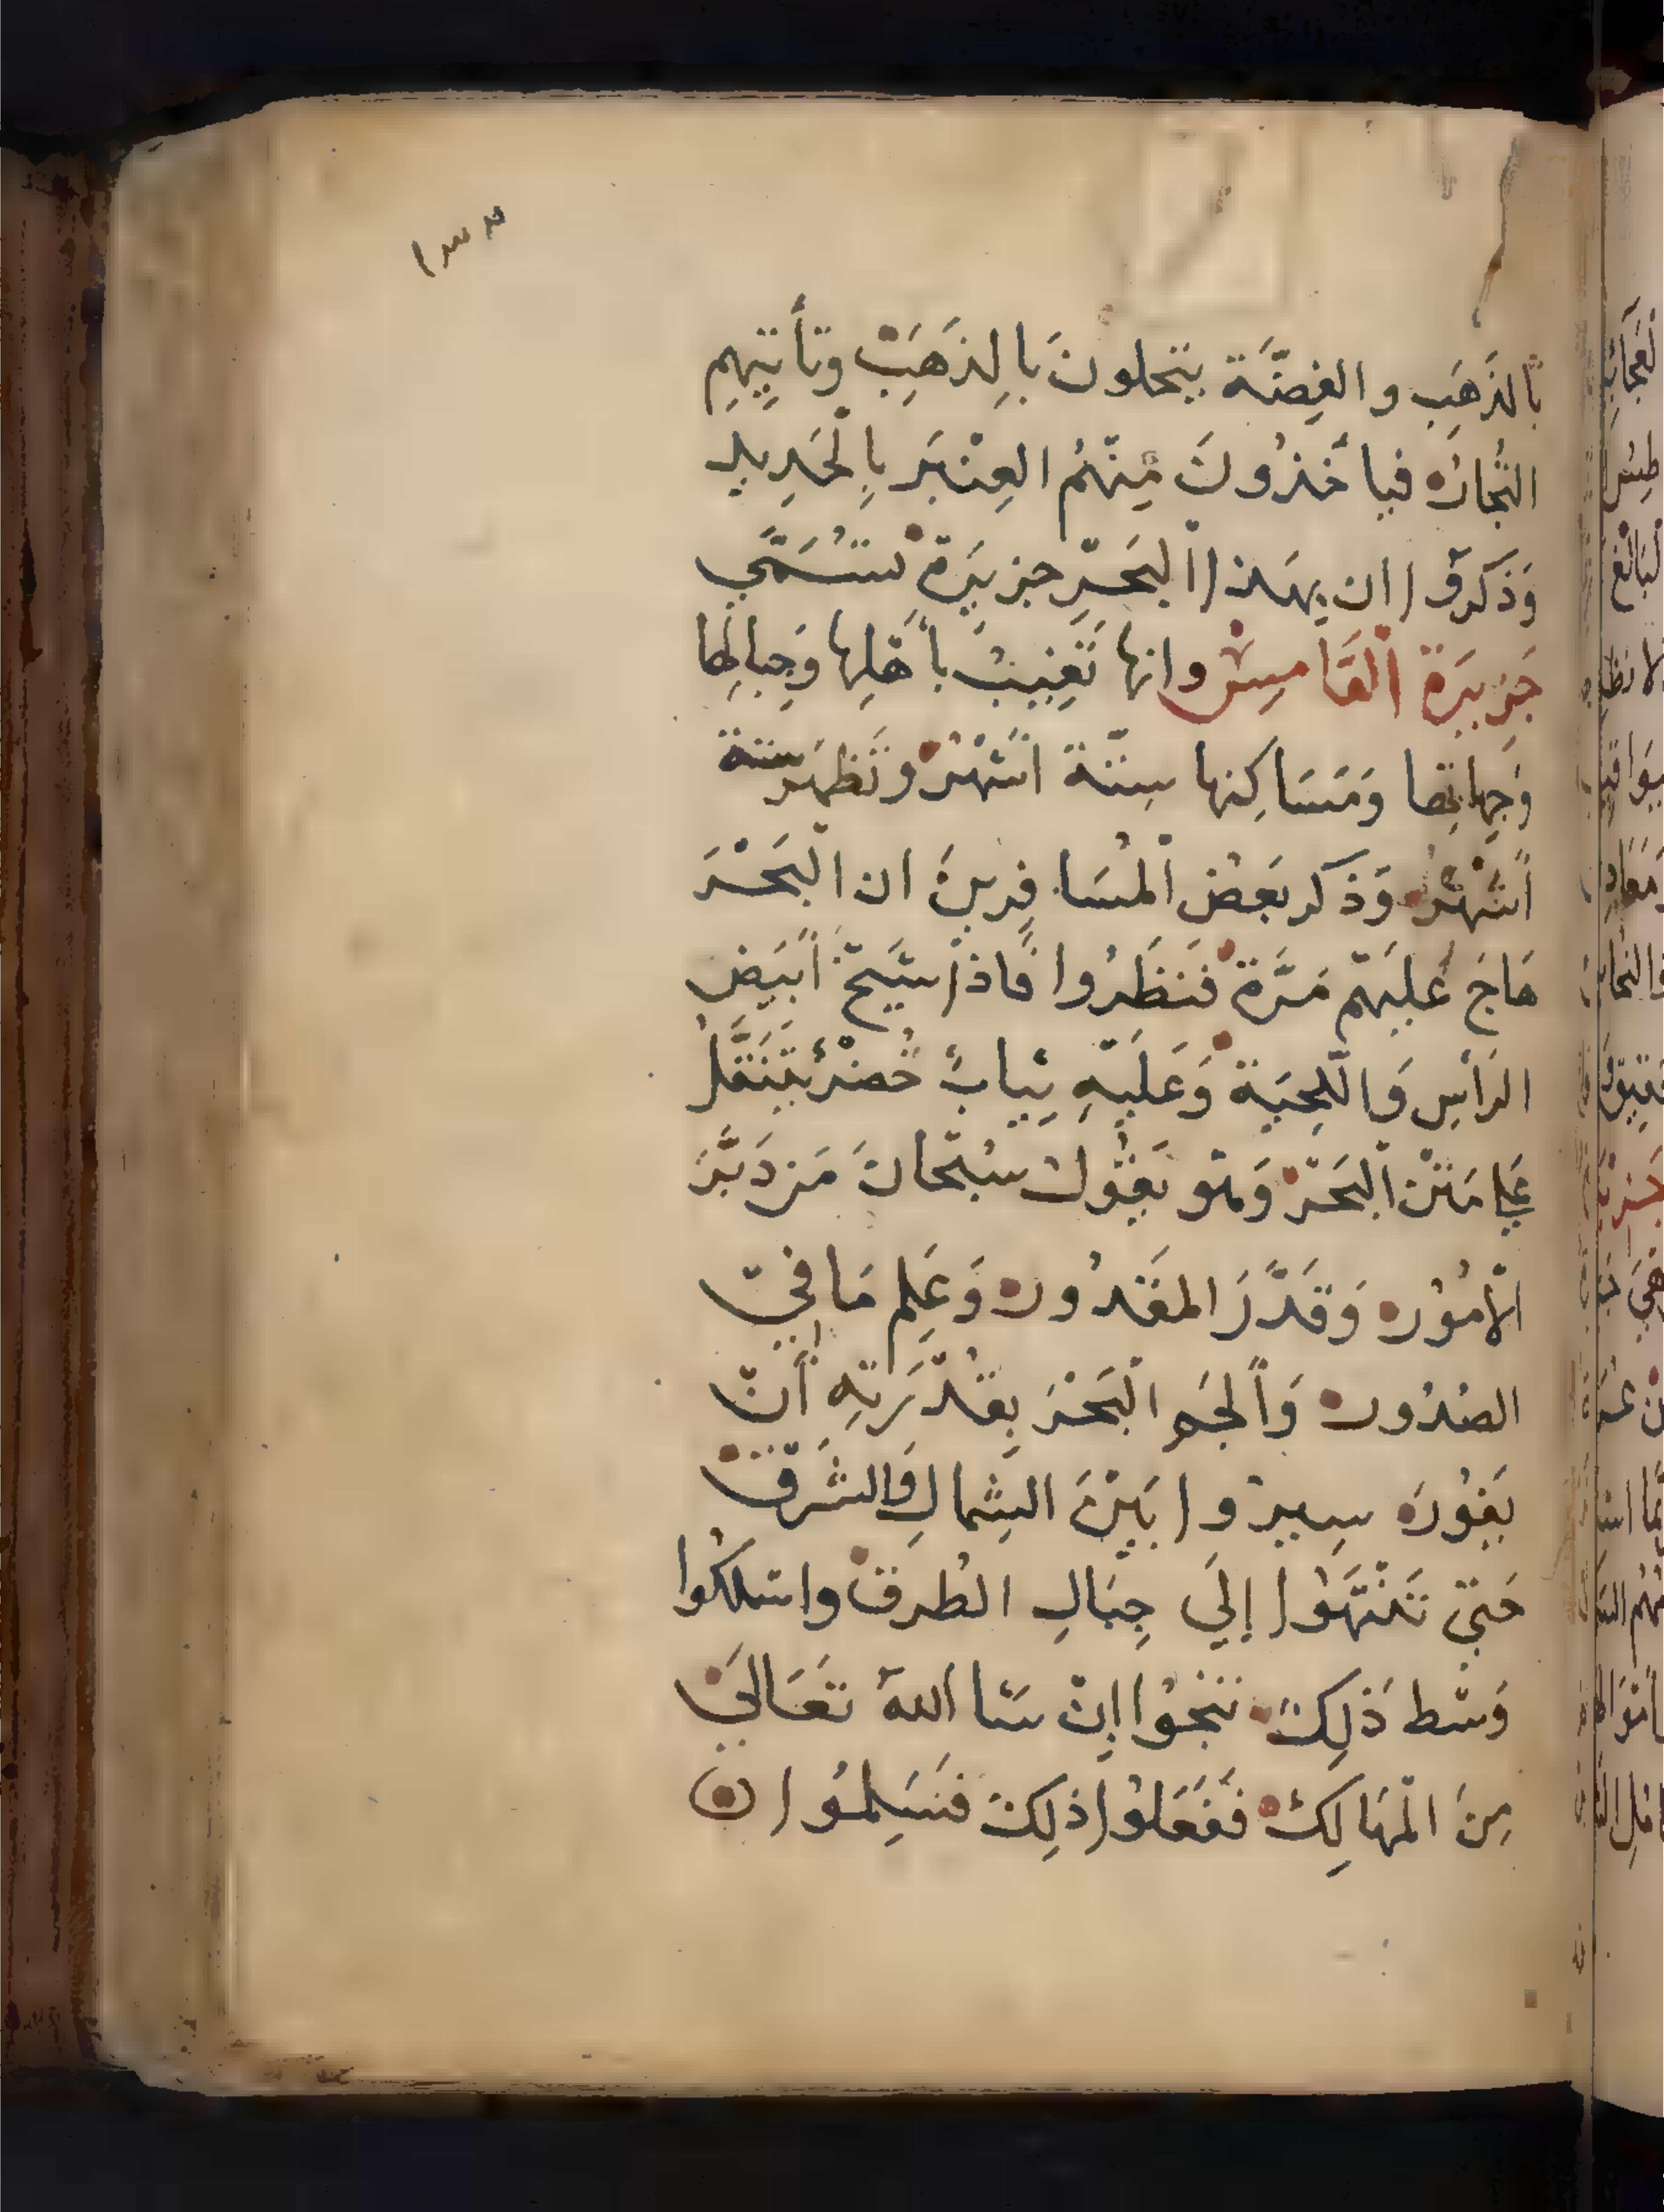 ١٣٣
بالذَهَبِ والفِضَّة يتحلونَ بالِذَهَبِ وتأتيِهمِ
التُجارُ فياخذُونَ مِنْهُم العِنْبَر بِالْحَدِيدِ
وَذكرُوا ان بهذا الْبَحَرِ جزيَرة تُسَمَّي
جَزيَرة الْقَامِسْ وانها تَغِيبُ بأهَلِها وَجِبالِها
وَجِهاتِها وَمَسَاكِنها ستَّة اشْهُرْ وتَظهَر ستة
اَشْهُرُ وَذكر بَعْض الْمُسَافِرينَ ان الْبَحْرَ
هَاجَ عَليَهمْ مَرَّةً فَنَظَرُوا فاذا شَيخٌ اَبيَض
الرَأسِ وَاللِحيَة وَعَليَهِ ثِيابٌ خُضْرٌ يَتَنَقَّلُ
عَلي مَتْن الْبَحَرْ وَهُو يَقُولُ سُبْحَانَ مَن دَبَّرَ
الأمُوُر وَقَدَّرَ المقَدُور وَعَلِم مَا فِي
الصُدُور وَألجَم الْبَحْرَ بِقُدْرَتهِ أنْ
يَفُورَ سِيروا بَيْنَ الشِمالِ وَالشَرْقْ
حَتيّ تَنْتَهَوُا إلَي جِبَالِ الطُرقْ واسلكُوا
وَسْط ذَلِكَ تنجُوا إنْ شَا اللهُ تَعَالَيْ
مِنَ الْمَهالِكْ فَفَعَلوُا ذلِكَ فَسَلِمُوا
لعجَائِب
جَزيَرة